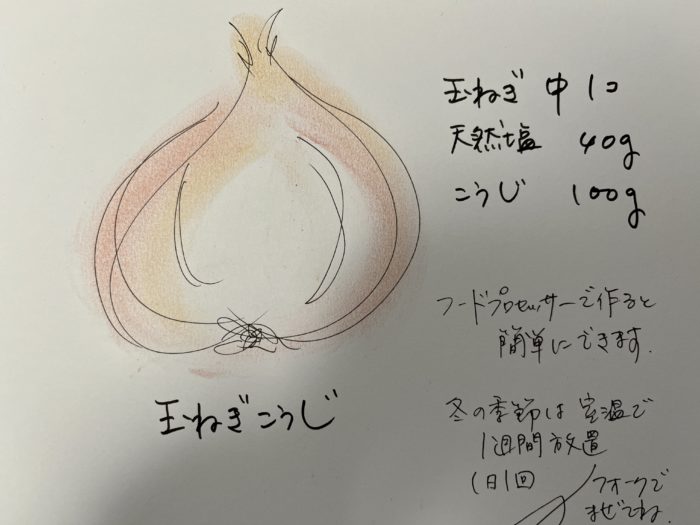 玉ねぎ 中 1コ
天然塩 40g
こうじ 100g
フードプロセッサーで作ると
簡単にできます.
玉ねぎこうじ
冬の季節は 室温で
1週間放置
1日1回 フォークで
まぜてね.